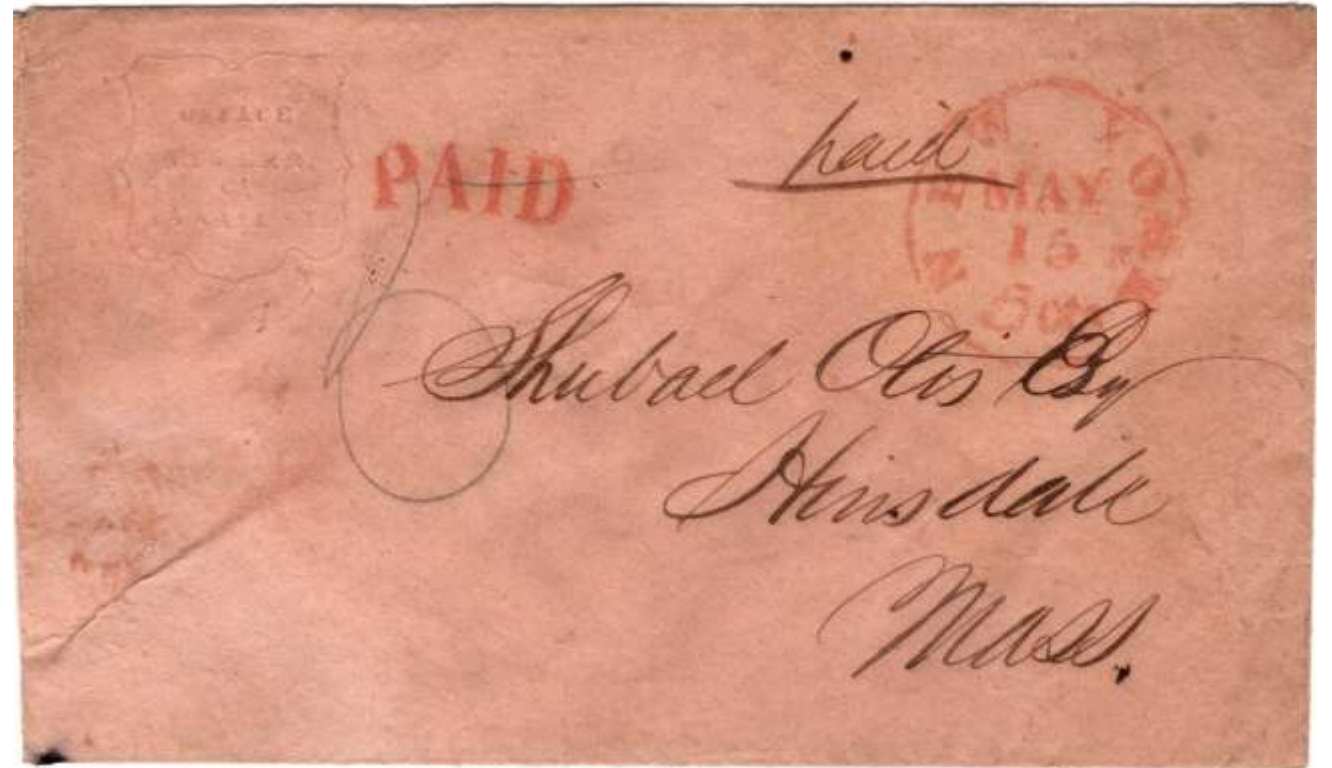 OFFICE
PAID
paid
NEW YORK
MAY
15
5 cts
Shubael Otis Esq
Hinsdale
Mass.